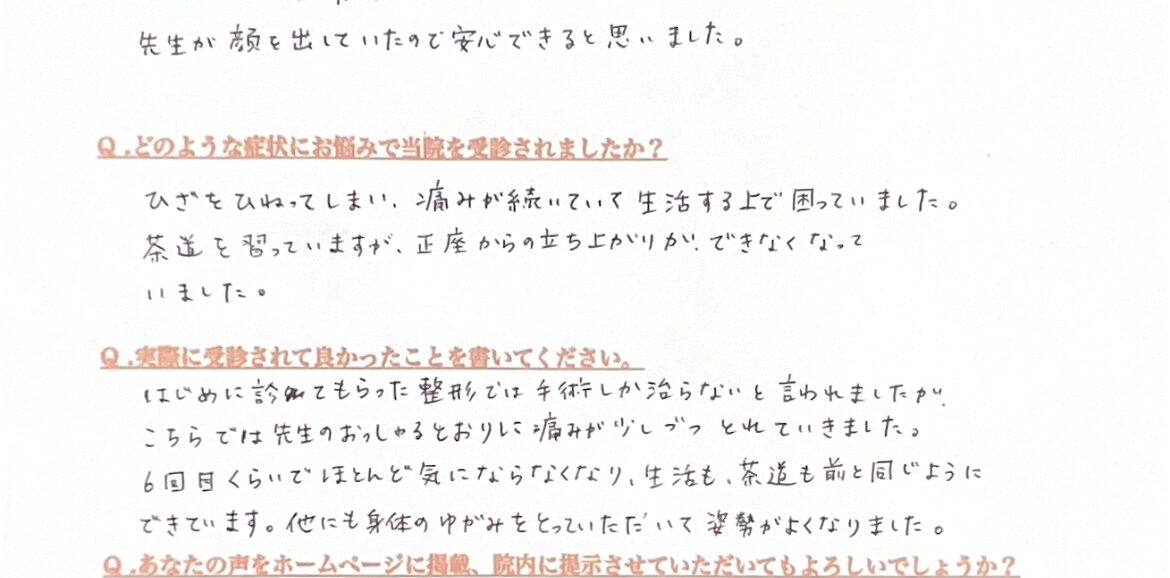 先生が顔を出していたので安心できると思いました。
Q.どのような症状にお悩みで当院を受診されましたか？
ひざをひねってしまい、痛みが続いていて生活する上で困っていました。
茶道を習っていますが、正座からの立ち上がりが、できなくなって
いました。
Q.実際に受診されて良かったことを書いてください。
はじめに診てもらった整形では手術しか治らないと言われましたが、
こちらでは先生のおっしゃるとおりに痛みが少しづつとれていきました。
6回目くらいでほとんど気にならなくなり、生活も、茶道も前と同じように
できています。他にも身体のゆがみをとっていただいて姿勢がよくなりました。
Q.あなたの声をホームページに掲載、院内に提示させていただいてもよろしいでしょうか？